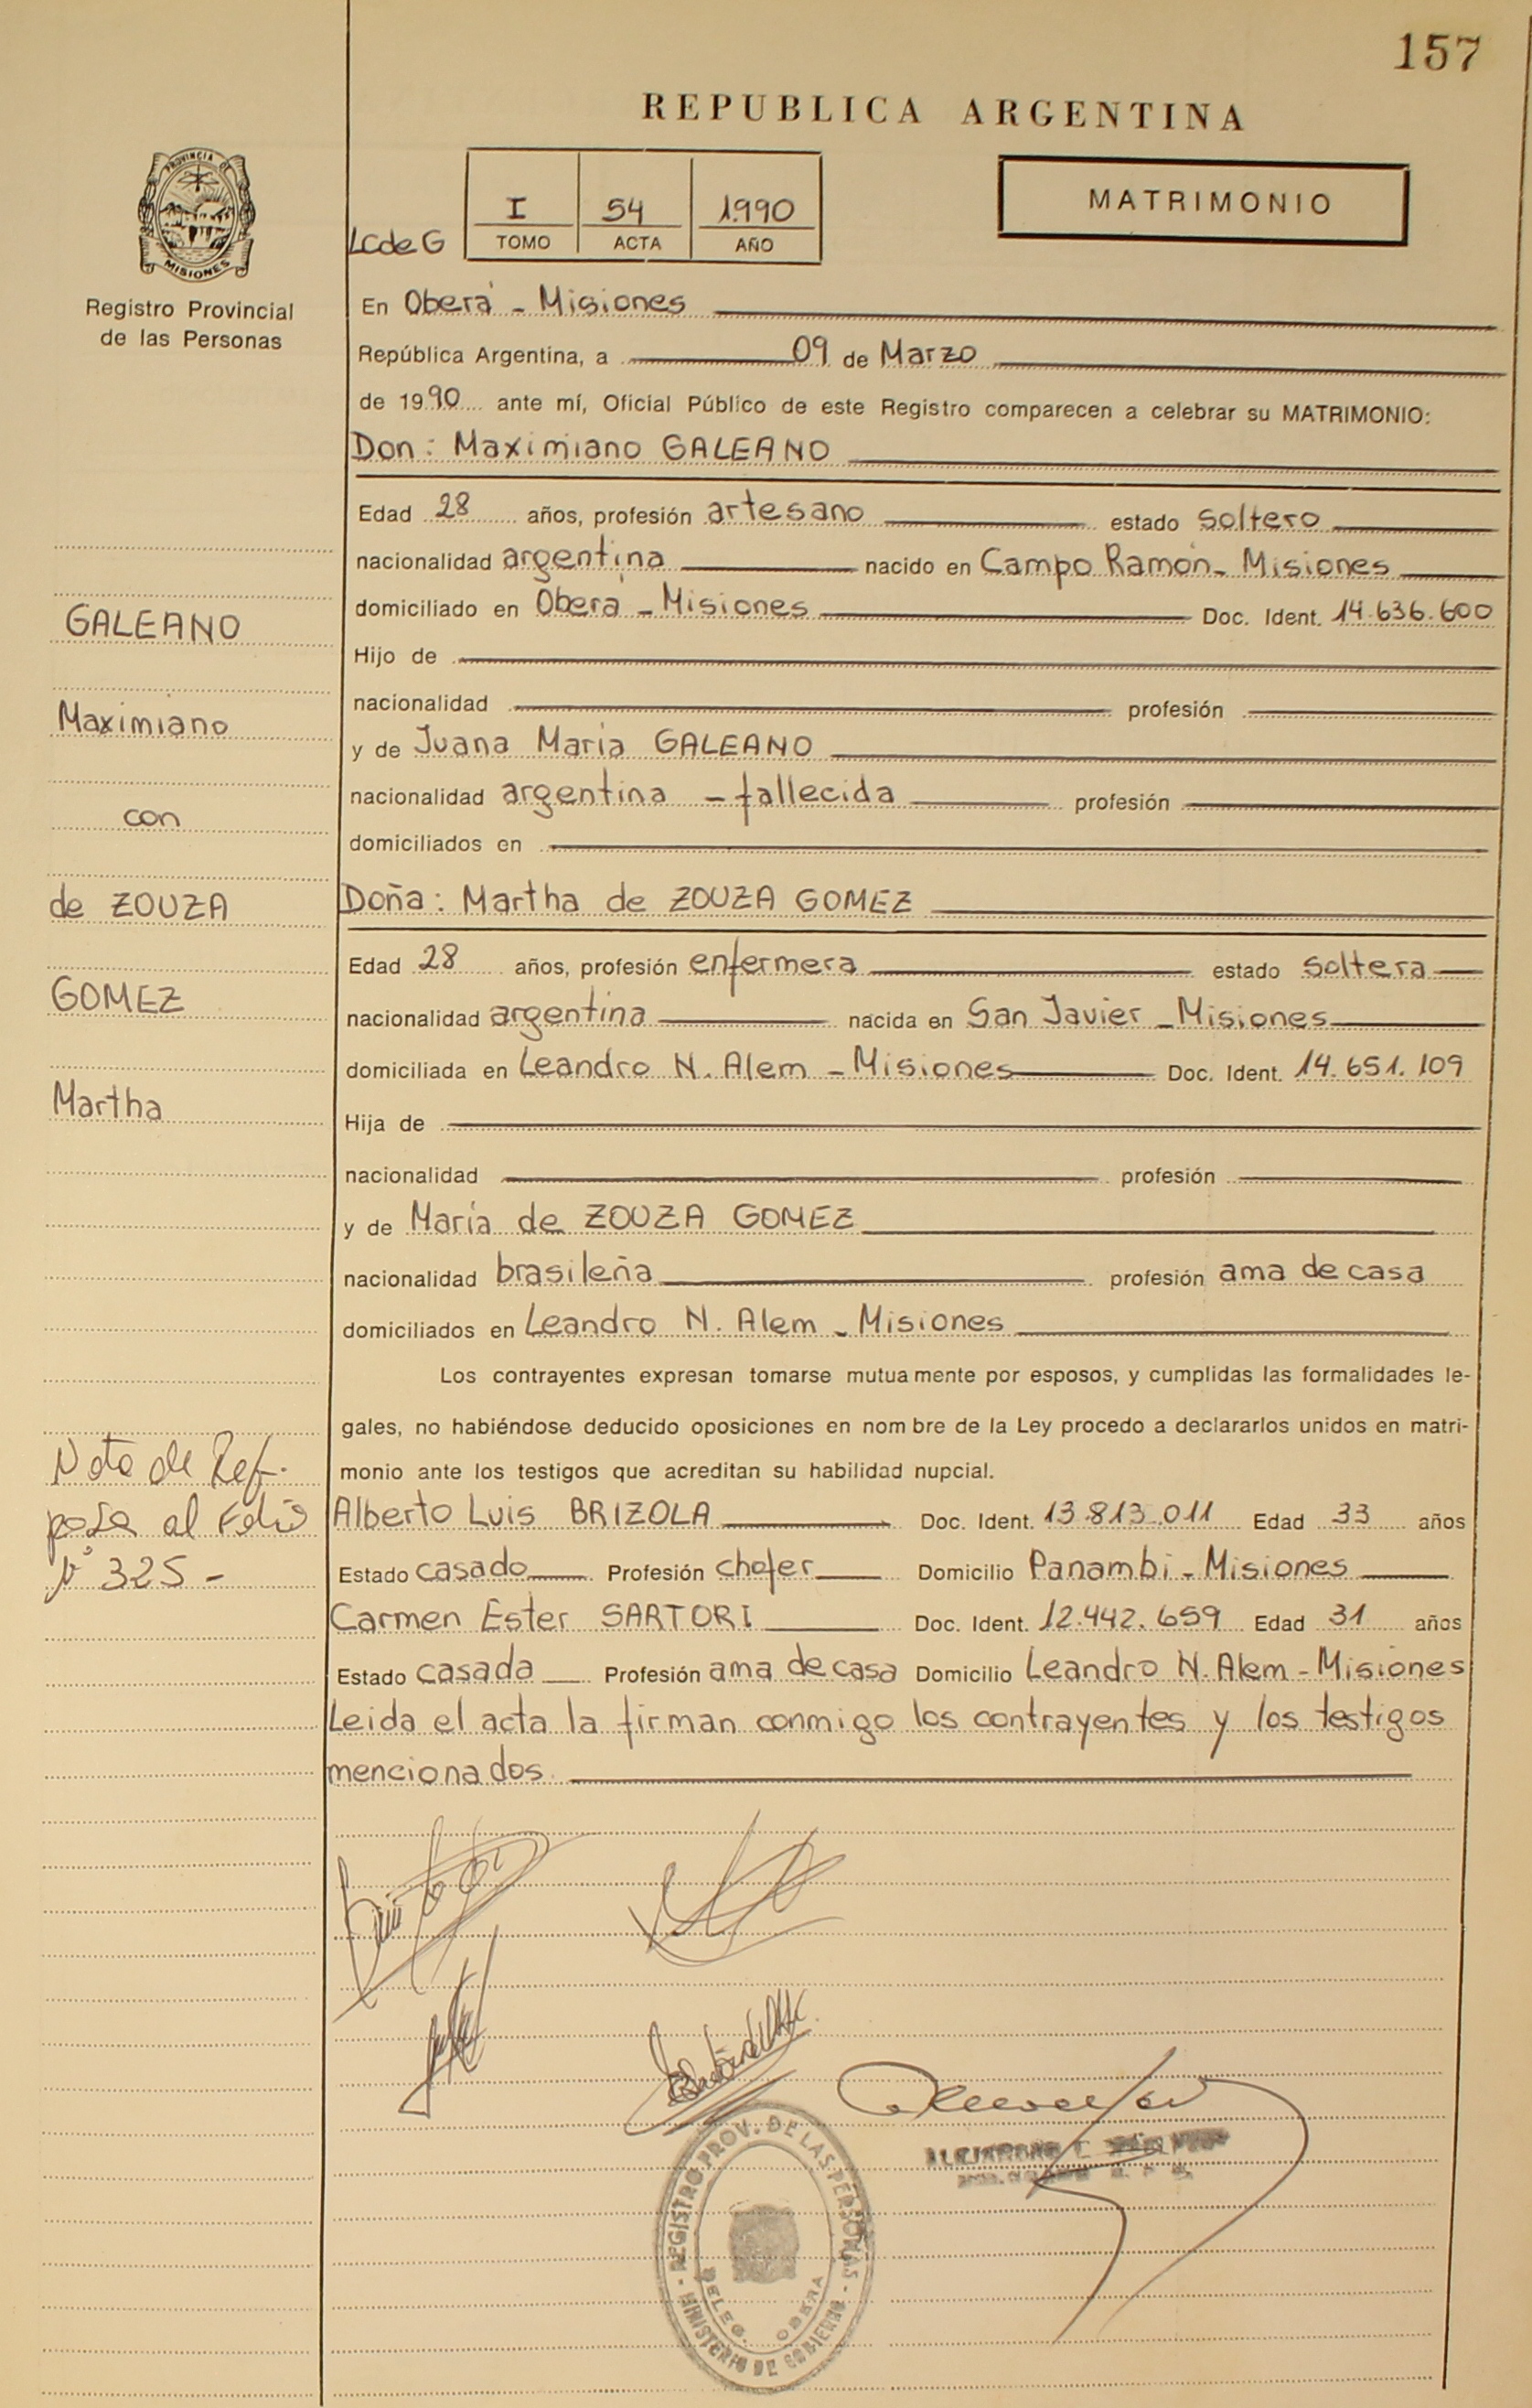 157
REPUBLICA ARGENTINA
PROVINCIA DE
MISIONES
Registro Provincial
de las Personas
LcdeG
I 54 1.990
TOMO ACTA AÑO
MATRIMONIO
En Oberá - Misiones
República Argentina, a 09 de Marzo
de 1990 ante mí, Oficial Público de este Registro comparecen a celebrar su MATRIMONIO:
Don: Maximiano GALEANO
Edad 28 años, profesión artesano estado soltero
nacionalidad argentina nacido en Campo Ramón - Misiones
domiciliado en Oberá - Misiones Doc. Ident. 14.636.600
Hijo de
nacionalidad profesión
y de Juana María GALEANO
nacionalidad argentina - fallecida profesión
domiciliados en
Doña: Martha de ZOUZA GOMEZ
Edad 28 años, profesión enfermera estado soltera
nacionalidad argentina nacida en San Javier - Misiones
domiciliada en Leandro N. Alem - Misiones Doc. Ident. 14.651.109
Hija de
nacionalidad profesión
y de María de ZOUZA GOMEZ
nacionalidad brasileña profesión ama de casa
domiciliados en Leandro N. Alem - Misiones
Los contrayentes expresan tomarse mutuamente por esposos, y cumplidas las formalidades le-
gales, no habiéndose deducido oposiciones en nombre de la Ley procedo a declararlos unidos en matri-
monio ante los testigos que acreditan su habilidad nupcial.
Alberto Luis BRIZOLA Doc. Ident. 13.813.011 Edad 33 años
Estado casado Profesión chofer Domicilio Panambí - Misiones
Carmen Ester SARTORI Doc. Ident. 12.442.659 Edad 31 años
Estado casada Profesión ama de casa Domicilio Leandro N. Alem - Misiones
Leida el acta la firman conmigo los contrayentes y los testigos
mencionados.
GALEANO
Maximiano
con
de ZOUZA
GOMEZ
Martha
Nota de Ref.
pasa al Folio
Nº 325 -
REGISTRO PROV. DE LAS PERSONAS
MINISTERIO DE GOBIERNO
DELEG. OBERA